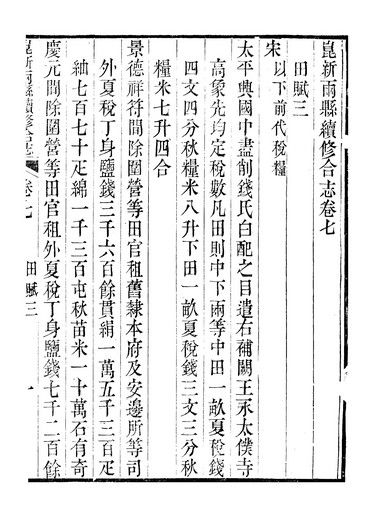 崑新兩縣續修合志卷七
田賦三
宋以下前代稅糧
太平興國中盡削錢氏白配之目遣右補闕王永太僕寺
高象先均定稅數凡田則中下兩等中田一畝夏稅錢
四文四分秋糧米八升下田一畝夏稅錢三文三分秋
糧米七升四合
景德祥符間除圍營等田官租舊隸本府及安邊所等司
外夏稅丁身鹽錢三千六百餘貫絹一萬五千三百疋
紬七百七十疋綿一千三百屯秋苗米一十萬石有奇
慶元間除圍營等田官租外夏稅丁身鹽錢七千二百餘
崑新兩縣續修合志
卷七
田賦三
一